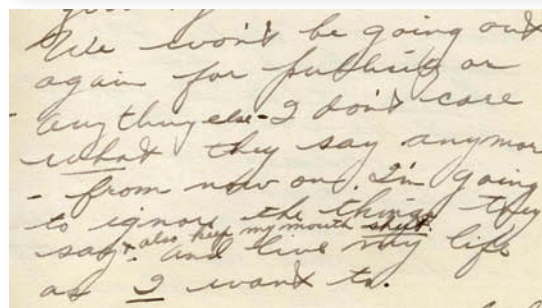 We won't be going out
again for publicity or
anything else - I don't care
what they say anymore
- from now on. I'm going
to ignore the things they
also keep my mouth shut.
say. and live my life
as I want to.